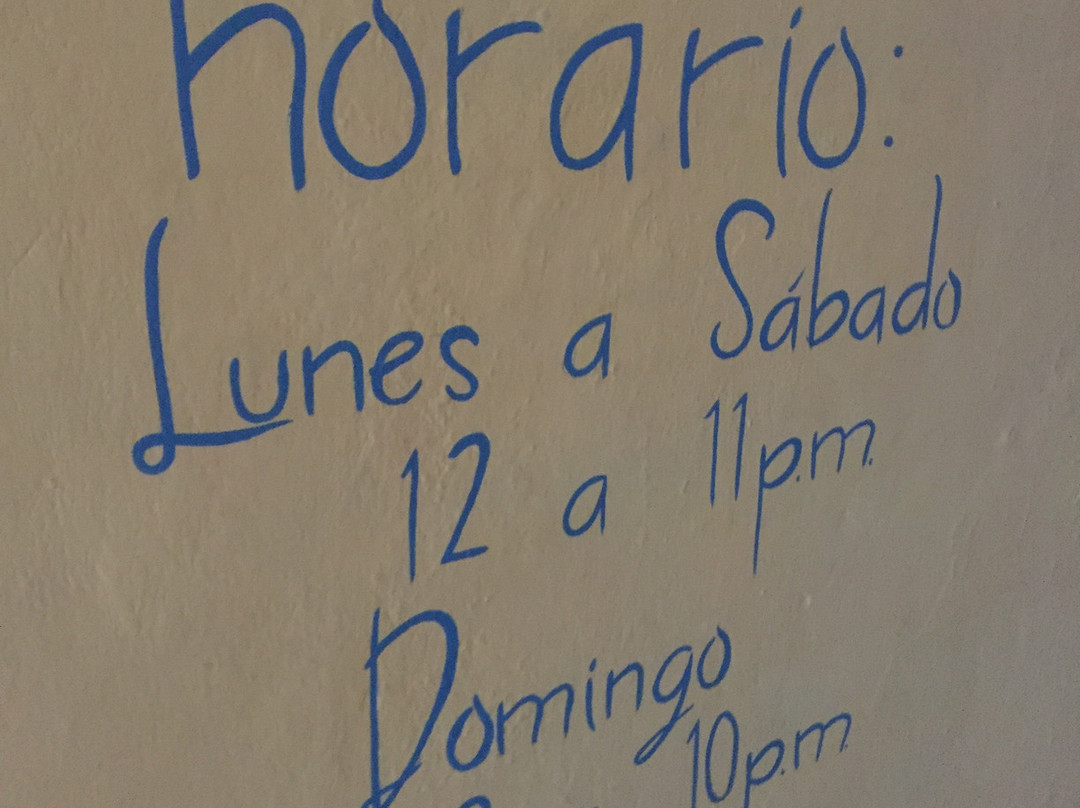 horario:
Lunes a Sábado
12 a 11p.m.
Domingo
10p.m.